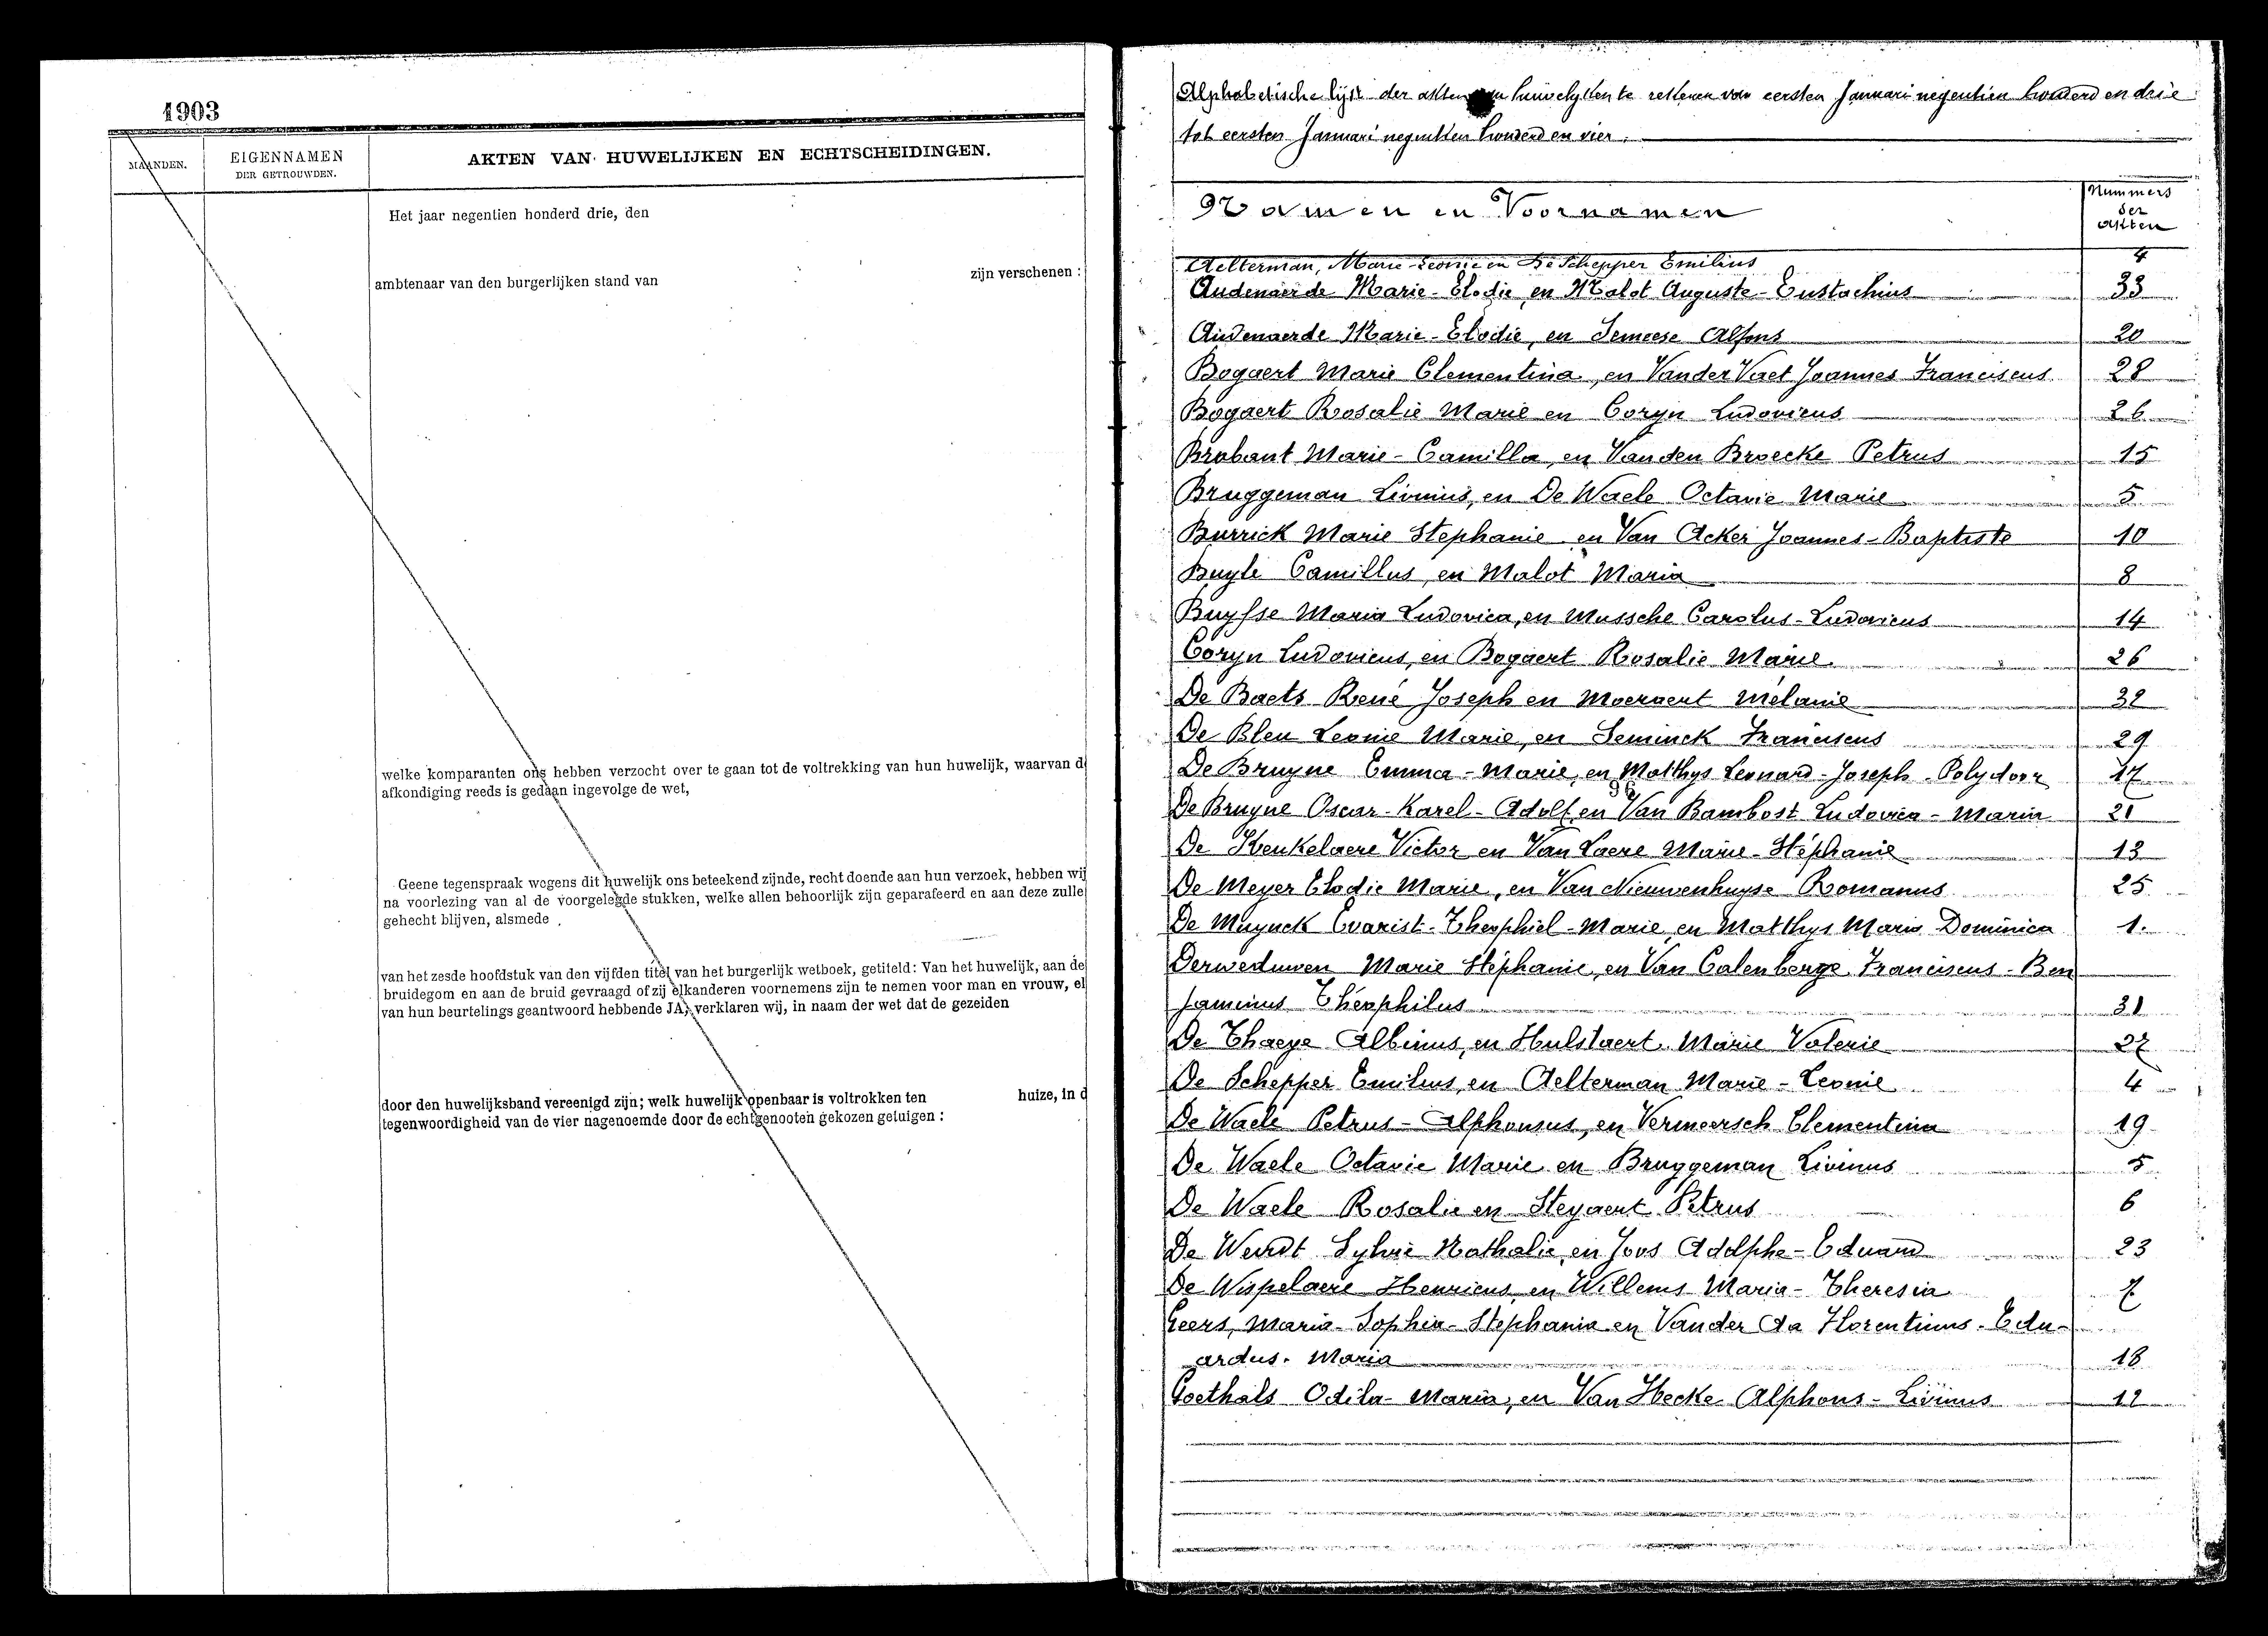 1903
MAANDEN.
EIGENNAMEN
DER GETROUWDEN.
AKTEN VAN HUWELIJKEN EN ECHTSCHEIDINGEN.
Het jaar negentien honderd drie, den
ambtenaar van den burgerlijken stand van zijn verschenen :
welke komparanten ons hebben verzocht over te gaan tot de voltrekking van hun huwelijk, waarvan d
afkondiging reeds is gedaan ingevolge de wet,
Geene tegenspraak wegens dit huwelijk ons beteekend zijnde, recht doende aan hun verzoek, hebben wij
na voorlezing van al de voorgelegde stukken, welke allen behoorlijk zijn geparafeerd en aan deze zulle
gehecht blijven, alsmede
van het zesde hoofdstuk van den vijfden titel van het burgerlijk wetboek, getiteld: Van het huwelijk, aan de
bruidegom en aan de bruid gevraagd of zij elkanderen voornemens zijn te nemen voor man en vrouw, el
van hun beurtelings geantwoord hebbende JA, verklaren wij, in naam der wet dat de gezeiden
door den huwelijksband vereenigd zijn; welk huwelijk openbaar is voltrokken ten huize, in d
tegenwoordigheid van de vier nagenoemde door de echtgenooten gekozen getuigen :
Alphabetische lijst der akten van huwelykken te rekenen van eersten Januari negentien honderd en drie
tot eersten Januari negentien honderd en vier.
Namen en Voornamen
Nummers
der
akten
Aelterman, Marie-Leonie en De Schepper Emilius 4
Audenaerde Marie-Elodie, en Malot Auguste-Eustachius 33
Audenaerde Marie-Elodie, en Semeese Alfons 20
Bogaert Marie Clementina, en Vander Vaet Joannes Franciscus 28
Bogaert Rosalie Marie en Coryn Ludovicus 26
Brabant Marie-Camilla, en Vanden Broecke Petrus 15
Bruggeman Livinus, en De Waele Octavie Marie 5
Burrick Marie Stephanie en Van Acker Joannes-Baptiste 10
Buyle Camillus, en Malot Maria 8
Buysse Maria Ludovica, en Mussche Carolus-Ludovicus 14
Coryn Ludovicus, en Bogaert Rosalie Marie 26
De Baets René Joseph en Moernaert Mélanie 32
De Bleu Leonie Marie, en Seminck Franciscus 29
De Bruyne Emma-Marie, en Matthys Leonard-Joseph-Polydoor 17
De Bruyne Oscar-Karel-Adolf, en Van Bambost Ludovica-Maria 21
De Keukelaere Victor en Van Laere Marie-Stéphanie 13
De Meyer Elodie Marie, en Van Nieuwenhuyse Romanus 25
De Muynck Evarist-Theophiel-Marie, en Matthys Maria Dominica 1.
Derweduwen Marie Stéphanie, en Van Calenberge Franciscus-Ben
jaminus Théophilus 31
De Thaeye Albinus, en Hulstaert Marie Valerie 27
De Schepper Emilius, en Aelterman Marie-Leonie 4
De Waele Petrus-Alphonsus, en Vermeersch Clementina 19
De Waele Octavie Marie en Bruggeman Livinus 5
De Waele Rosalie en Steyaert Petrus 6
De Weirdt Sylvie Nathalie, en Joos Adolphe-Eduard 23
De Wispelaere Henricus, en Willems Maria-Theresia 7
Geers, Maria-Sophia-Stephania en Vander Aa Florentinus-Edu-
ardus-Maria 18
Goethals Odila-Maria, en Van Hecke Alphons-Livinus 12